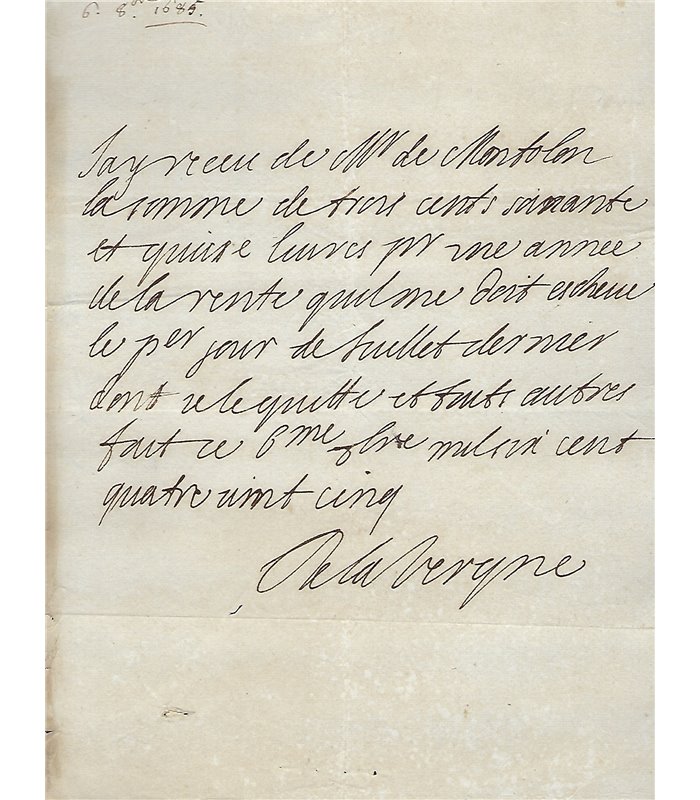 6. 8bre 1685.
Jay receu de Mr de Montolon
la somme de trois cents soixante
et quinse livres pr une annee
de la rente quil me doit escheue
le per jour de Juillet dernier
dont je le quitte et touts autres
fait ce 6me 8bre mil six cent
quatre vint cinq
De la Vergne